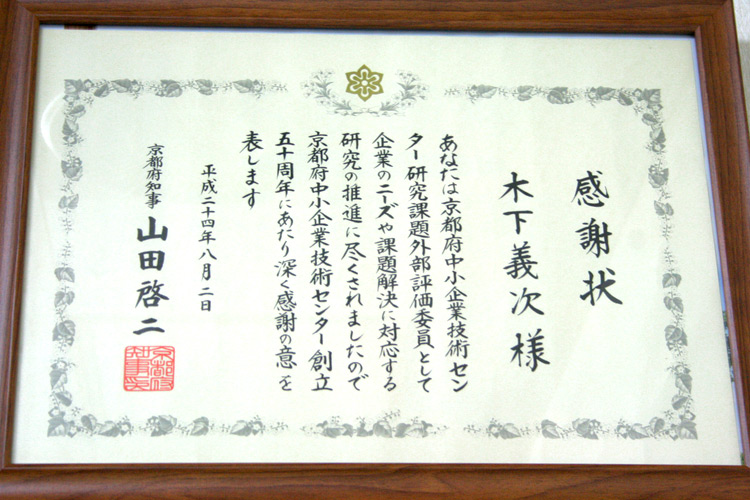 感謝状
木下義次様
あなたは京都府中小企業技術セン
ター研究課題外部評価委員として
企業のニーズや課題解決に対応する
研究の推進に尽くされましたので
京都府中小企業技術センター創立
五十周年にあたり深く感謝の意を
表します
平成二十四年八月二日
京都府知事 山田啓二
京都府
知事之